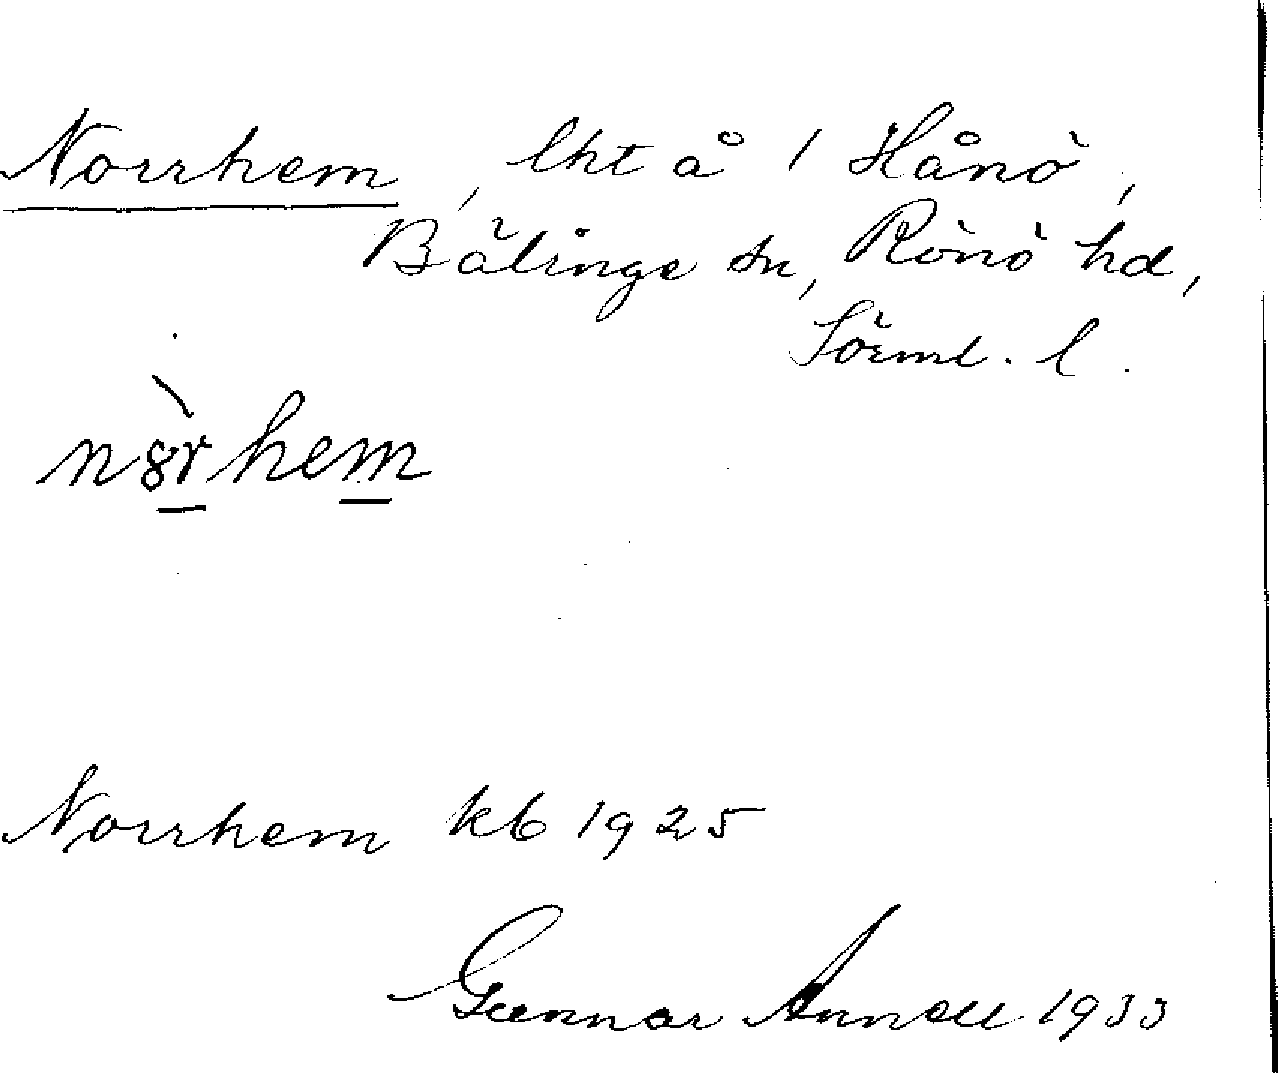 Norrhem, lht å 1 Hånö,
Bälinge sn, Rönö hd,
Sörml. l.
n8̀rhem
Norrhem kb 1925
Gunnar Annell 1933